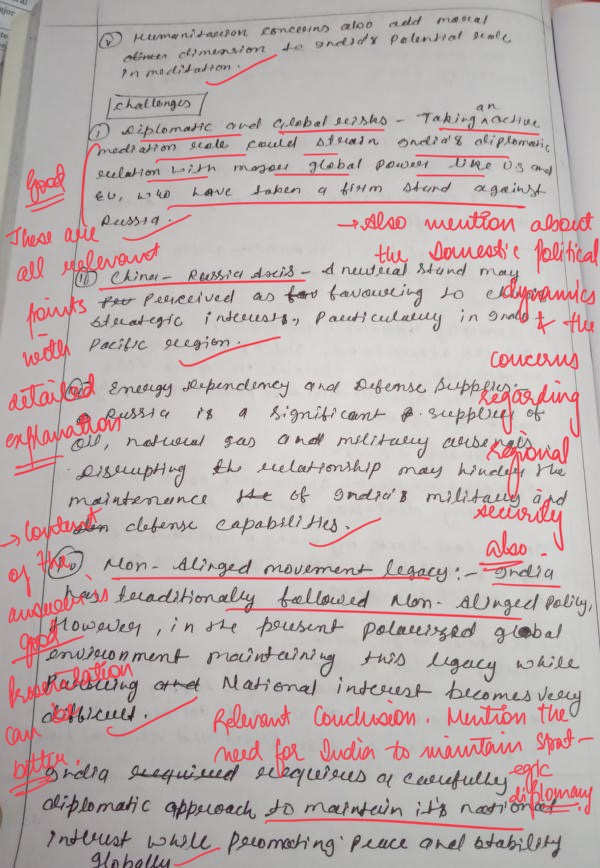 (v) Humanitarian concerns also add moral
dimension to India's Potential role
in meditation.
Challenges
(i) Diplomatic and Global risks - Taking an active
mediation role could strain India's diplomatic
relation with major global power like US and
EU, who have taken a firm stand against
Russia.
→ Also mention about
the Domestic Political
dynamics
& the
concerns
regarding
regional
security
also.
Good
These are
all relevant
points
with
detailed
explanation
(ii) China - Russia Axis - A neutral stand may
Perceived as favouring to
strategic interests, Particularly in Indo
Pacific region.
Energy Dependency and Defense Supplies:
Russia is a significant supplier of
oil, natural gas and military arsenals.
Disrupting the relationship may hinder the
maintenance of India's military and
defense capabilities.
→ Content
of the
answer is
good
Presentation
can be
better.
Non-Alinged movement legacy:- India
has traditionally followed Non-Alinged Policy,
However, in the present Polarized global
environment maintaining this legacy while
National interest becomes very
difficult.
Relevant Conclusion. Mention the
need for India to maintain strat-
egic
diplomacy.
India requires a carefully
diplomatic approach to maintain it's national
interest while promoting peace and stability
Globally